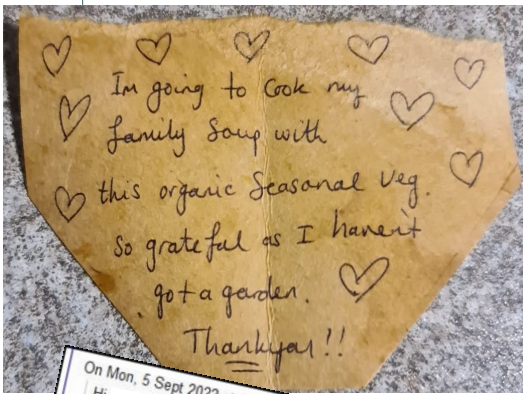 Im going to Cook my
family Soup with
this organic Seasonal Veg.
So grateful as I haven't
got a garden.
Thankyou!!
On Mon, 5 Sept 2022
Hi